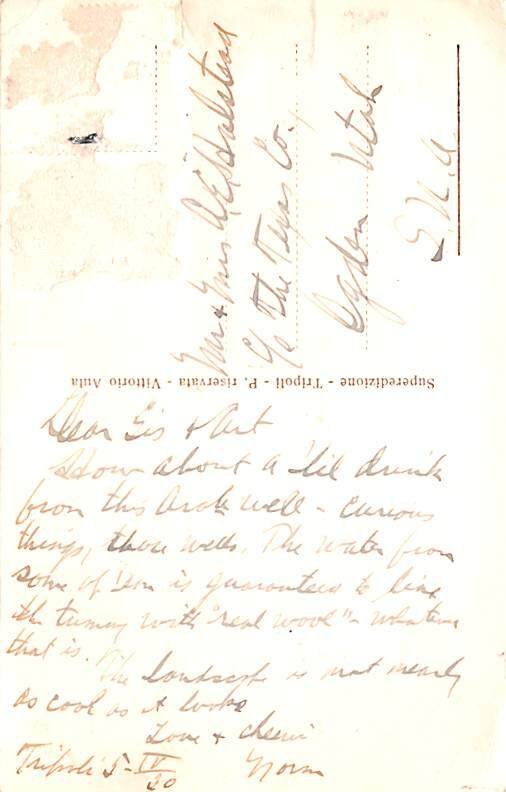 Mr & Mrs A E Halstead
c/o The Texas Co.,
Ogden Utah
U.S.A
Superedizione - Tripoli - P. riservata - Vittorio Aula
Dear Sis & Art
How about a 'lil drink
from this Arab well - curious
things, these wells. The water from
some of 'em is guaranteed to line
the tummy with "real wool" - whatever
that is.
The landscape is not nearly
as cool as it looks
Love & cheerio
Norm
Tripoli 5-IV/30